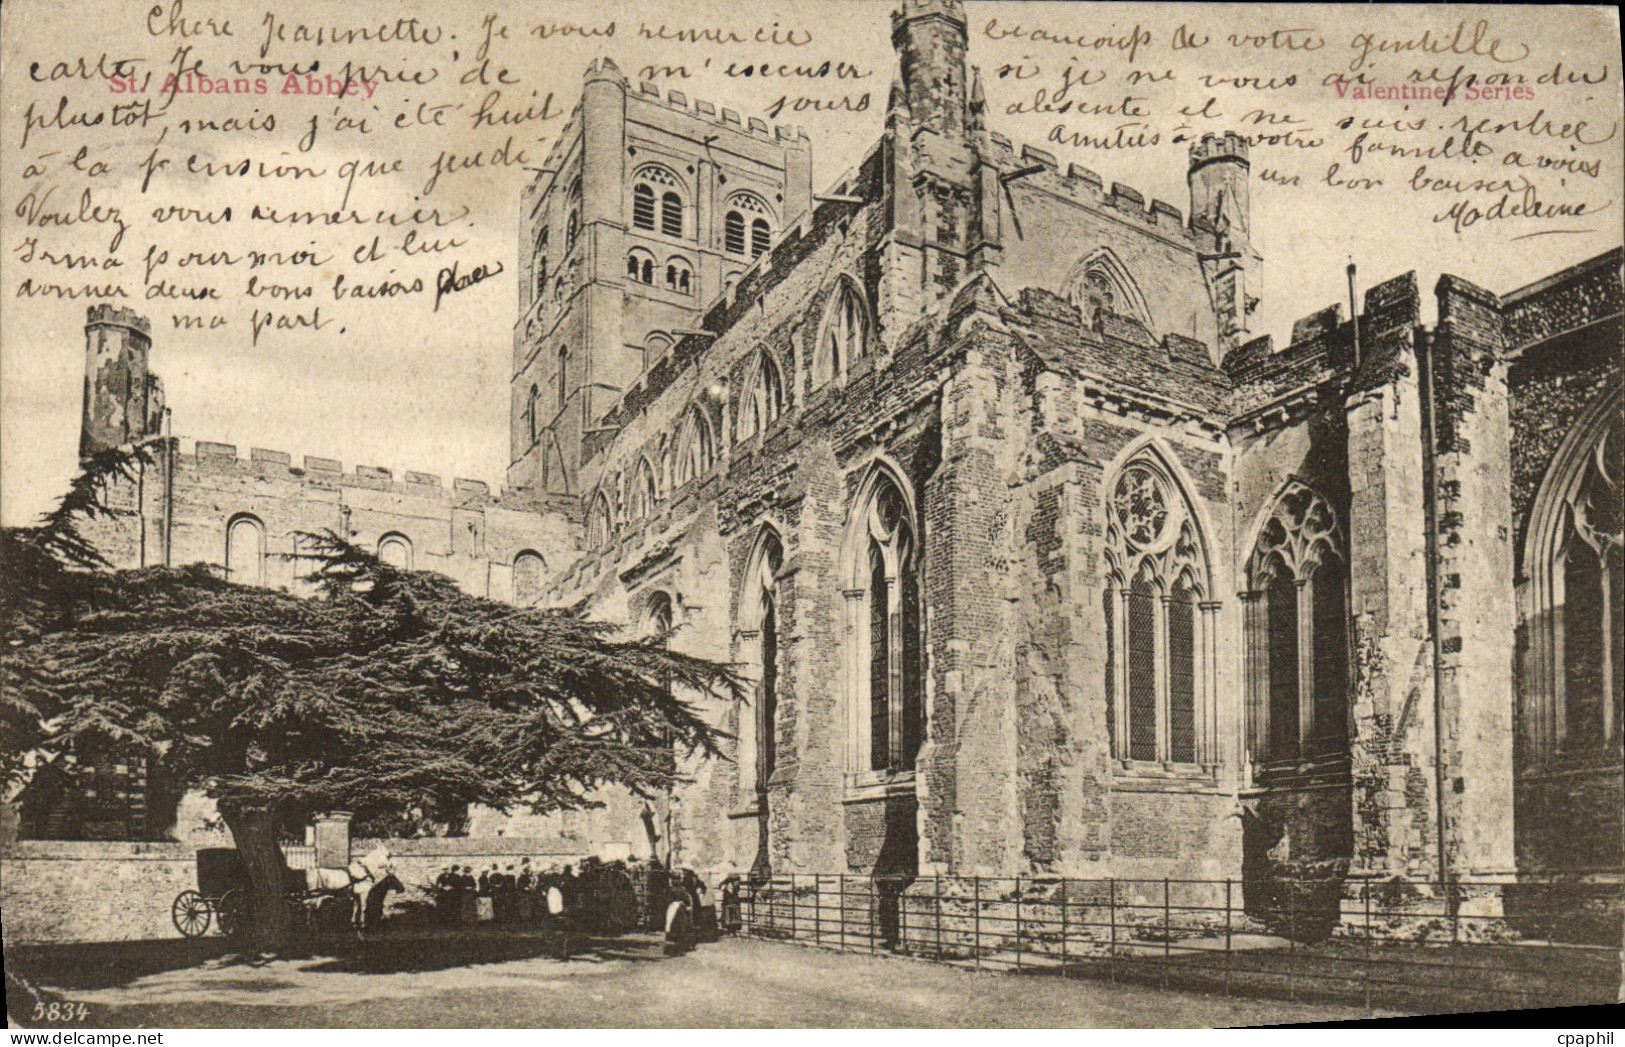 Chère Jeannette. Je vous remercie beaucoup de votre gentille
carte, Je vous prie de m'esecuser si je ne vous ai repondu
plustôt, mais j'ai été huit jours absente et ne suis rentrée
à la pension que jeudi
Amitiés à votre famille a vous
un bon baiser
Madeleine
Voulez vous remercier
Irma pour moi et lui
donner deux bons baisers pour
ma part.
St. Albans Abbey
Valentines Series
5834
cpaphil